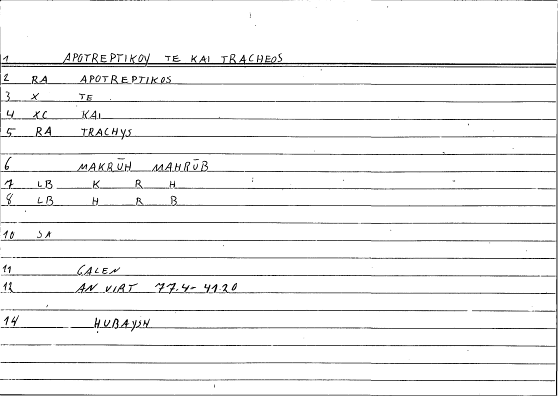 1 APOTREPTIKOY TE KAI TRACHEOS
2 RA APOTREPTIKOS
3 X TE
4 XC KAI
5 RA TRACHYS
6 MAKRŪH MAHRŪB
7 LB K R H
8 LB H R B
10 SA
11 GALEN
12 AN VIRT 77.4-41.20
14 ḤUBAYSH